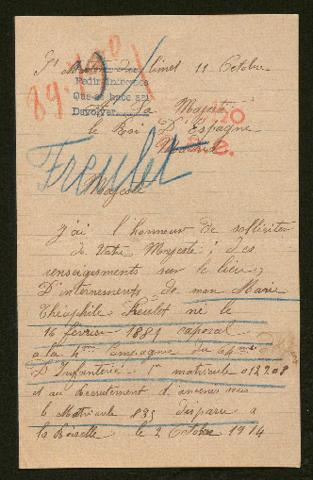 11 Octobre
Pedir informes
Que se hace así
Devolver
A Sa Majesté
le Roi D'Espagne
Madrid
Freulet
Majesté
J'ai l'honneur de solliciter
de Votre Majesté ; des
renseignements sur le lieu
D'internements de mon Marie
Théophile Freulet né le
16 février 1881 caporal
a la 4me Compagnie du 64me
D'Infanterie matricule 012208
et au Recrutement d'ancenis sous
le Matricule 835 disparu a
la Boiselle le 2 Octobre 1914